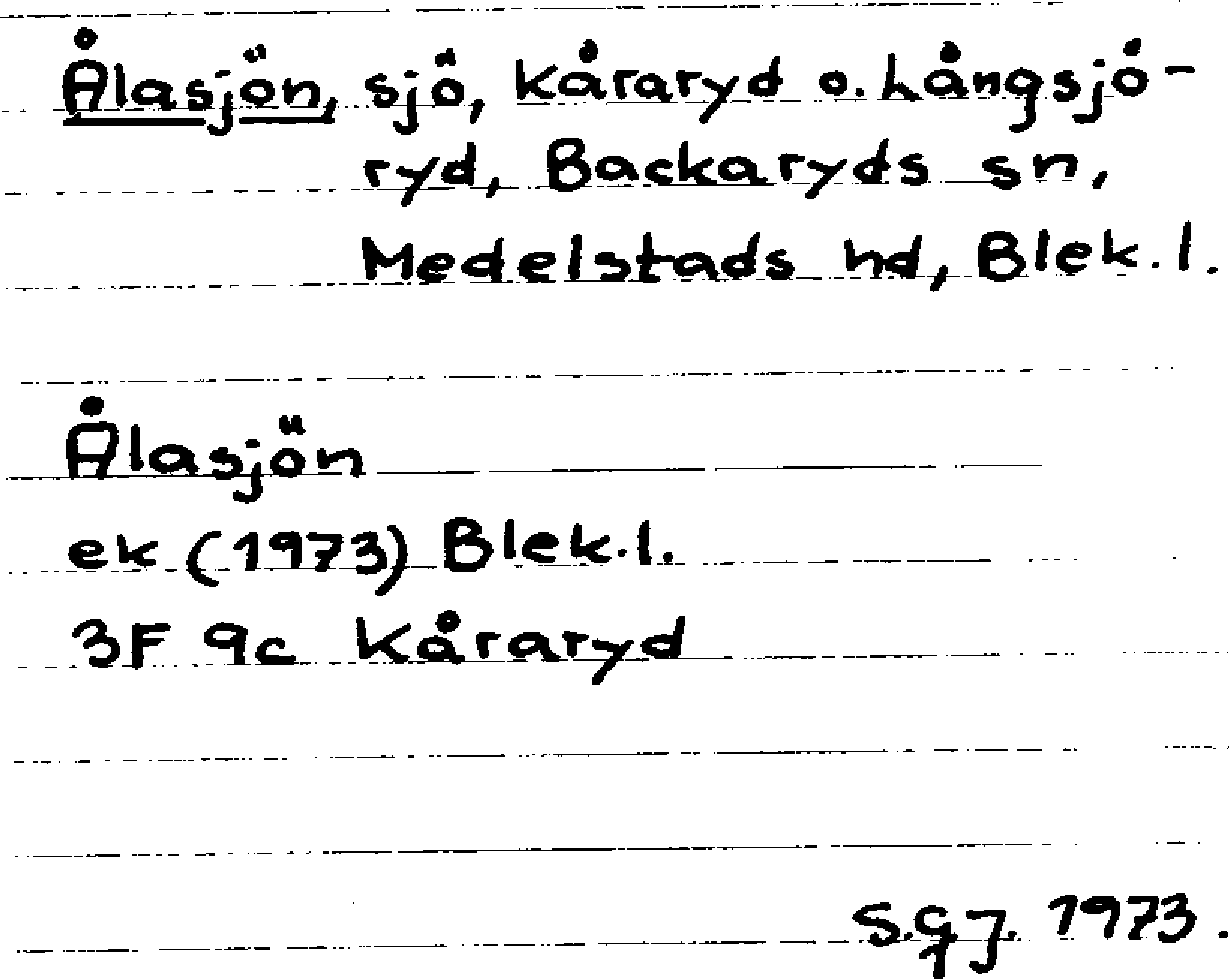 Ålasjön, sjö, Kåraryd o. Långsjö-
ryd, Backaryds sn,
Medelstads hd, Blek. l.
Ålasjön
ek (1973) Blek. l.
3F 9c Kåraryd
S.G.J. 1973.